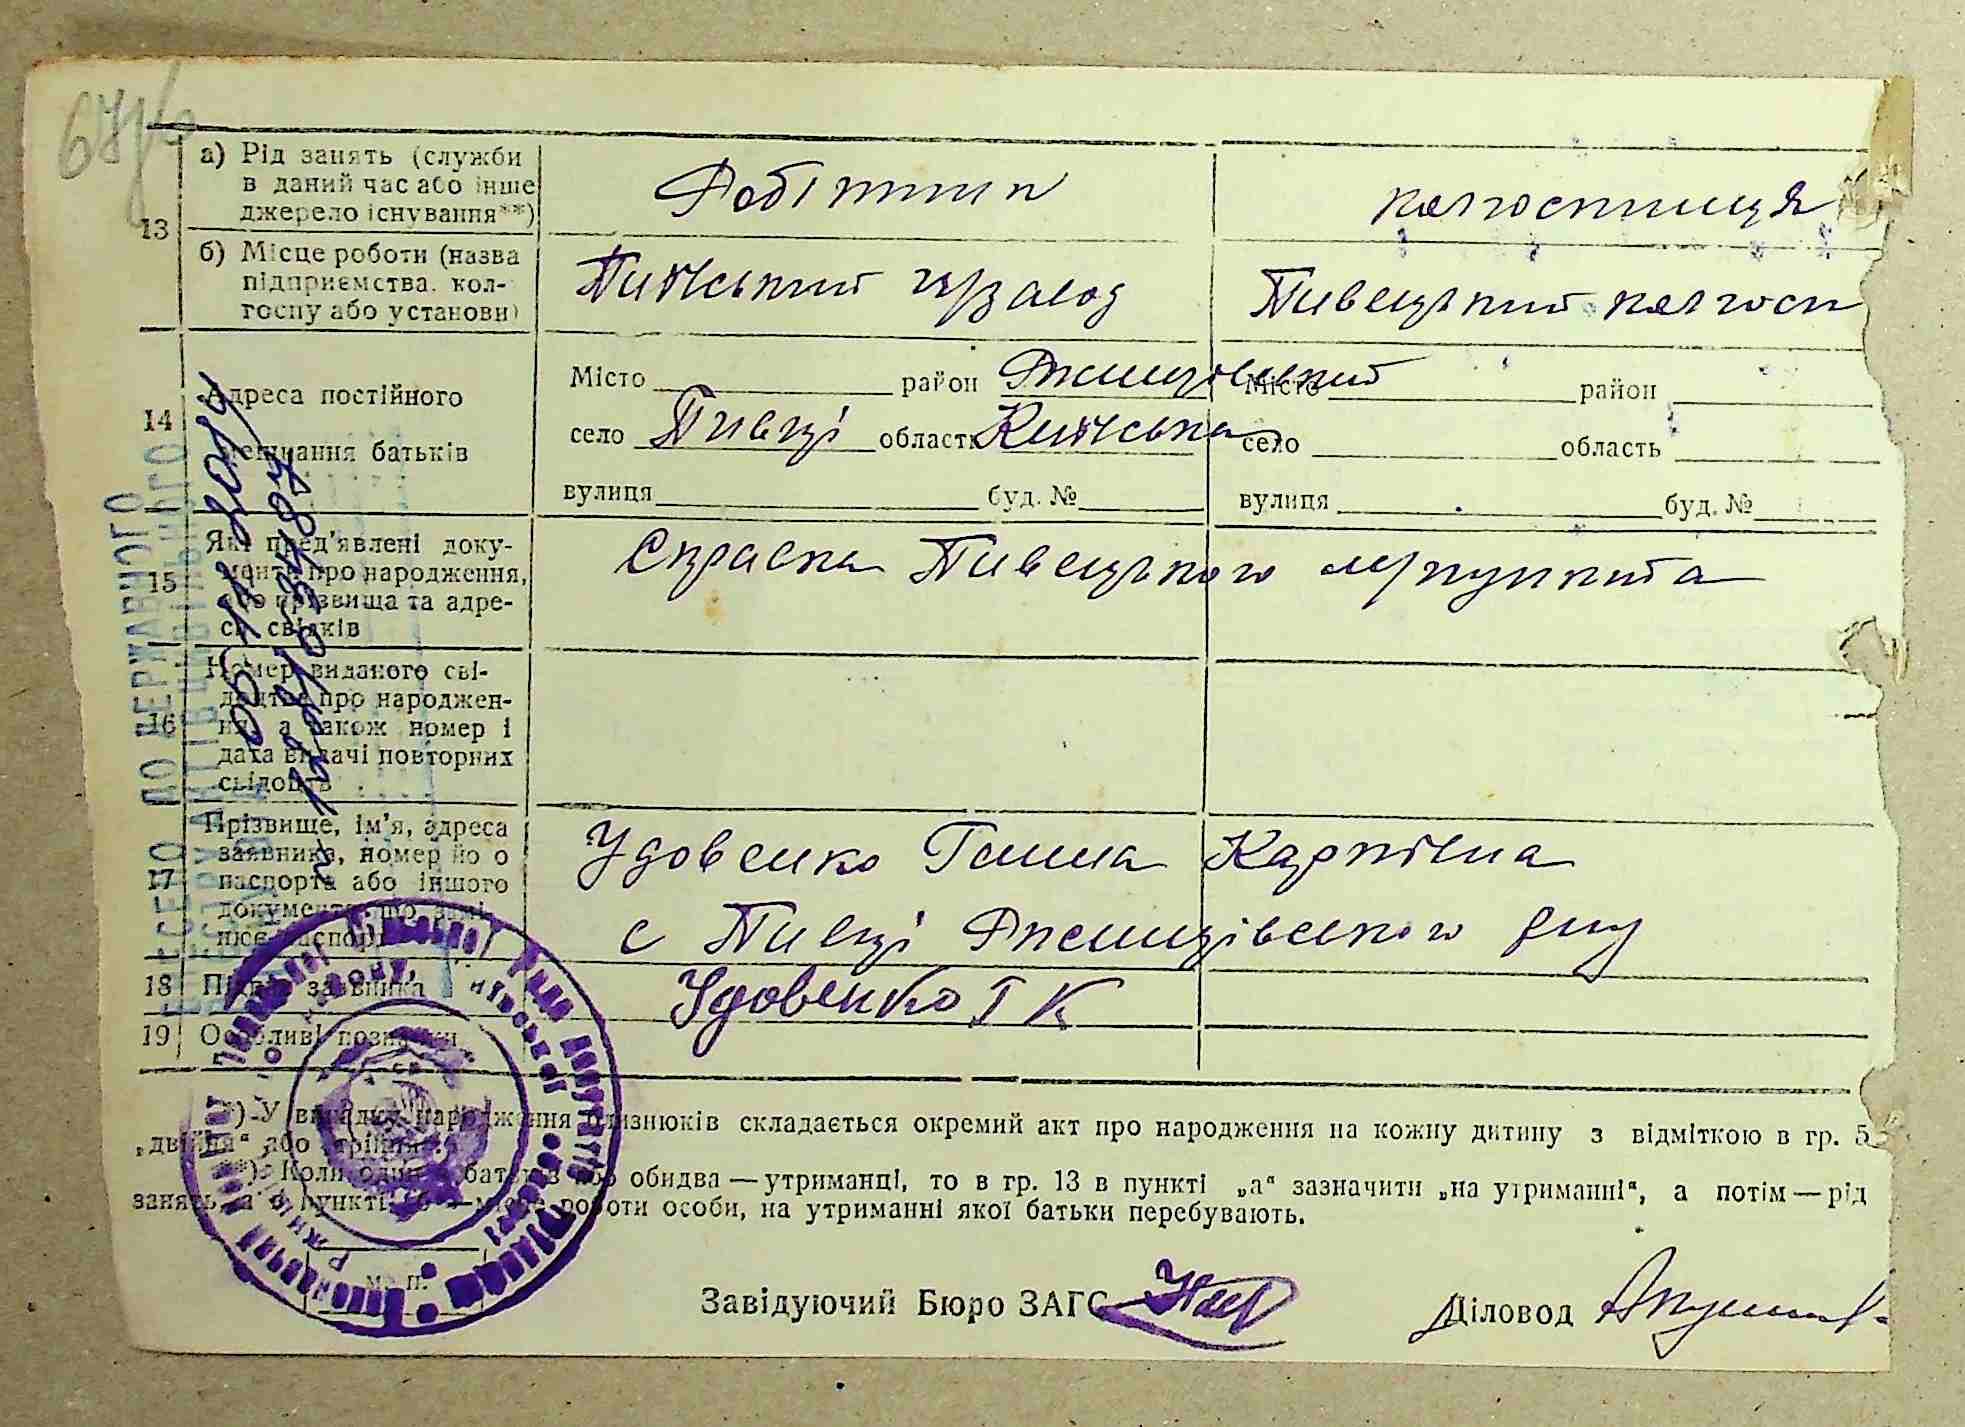 13
а) Рід занять (служби
в даний час або інше
джерело існування**)
Робітник
колгоспниця
б) Місце роботи (назва
підприємства, кол-
госпу або установи)
Пивський цукрзавод
Пивецький колгосп
14
Адреса постійного
мешкання батьків
Місто район Ржищівський
село Пивці область Київська
вулиця буд. №
Місто район
село область
вулиця буд. №
15
Які пред'явлені доку-
менти про народження,
або прізвища та адре-
си свідків
Справка Пивецького медпункта
16
Номер виданого сві-
доцтва про народжен-
ня, а також номер і
дата видачі повторних
свідоцтв
17
Прізвище, ім'я, адреса
заявника, номер його
паспорта або іншого
документа, що замі-
нює паспорт
Удовенко Ганна Карпівна
с Пивці Ржищівського р-ну
18 Підпис заявника
Удовенко Г К
19 Особливі позначки
*) У випадку народження близнюків складається окремий акт про народження на кожну дитину з відміткою в гр. 5
„двійня“ або „трійня“.
**) Коли один з батьків або обидва — утриманці, то в гр. 13 в пункті „а“ зазначити „на утриманні“, а потім — рід
занять, а в пункті „б“ — місце роботи особи, на утриманні якої батьки перебувають.
М. П.
Завідуючий Бюро ЗАГС
Діловод